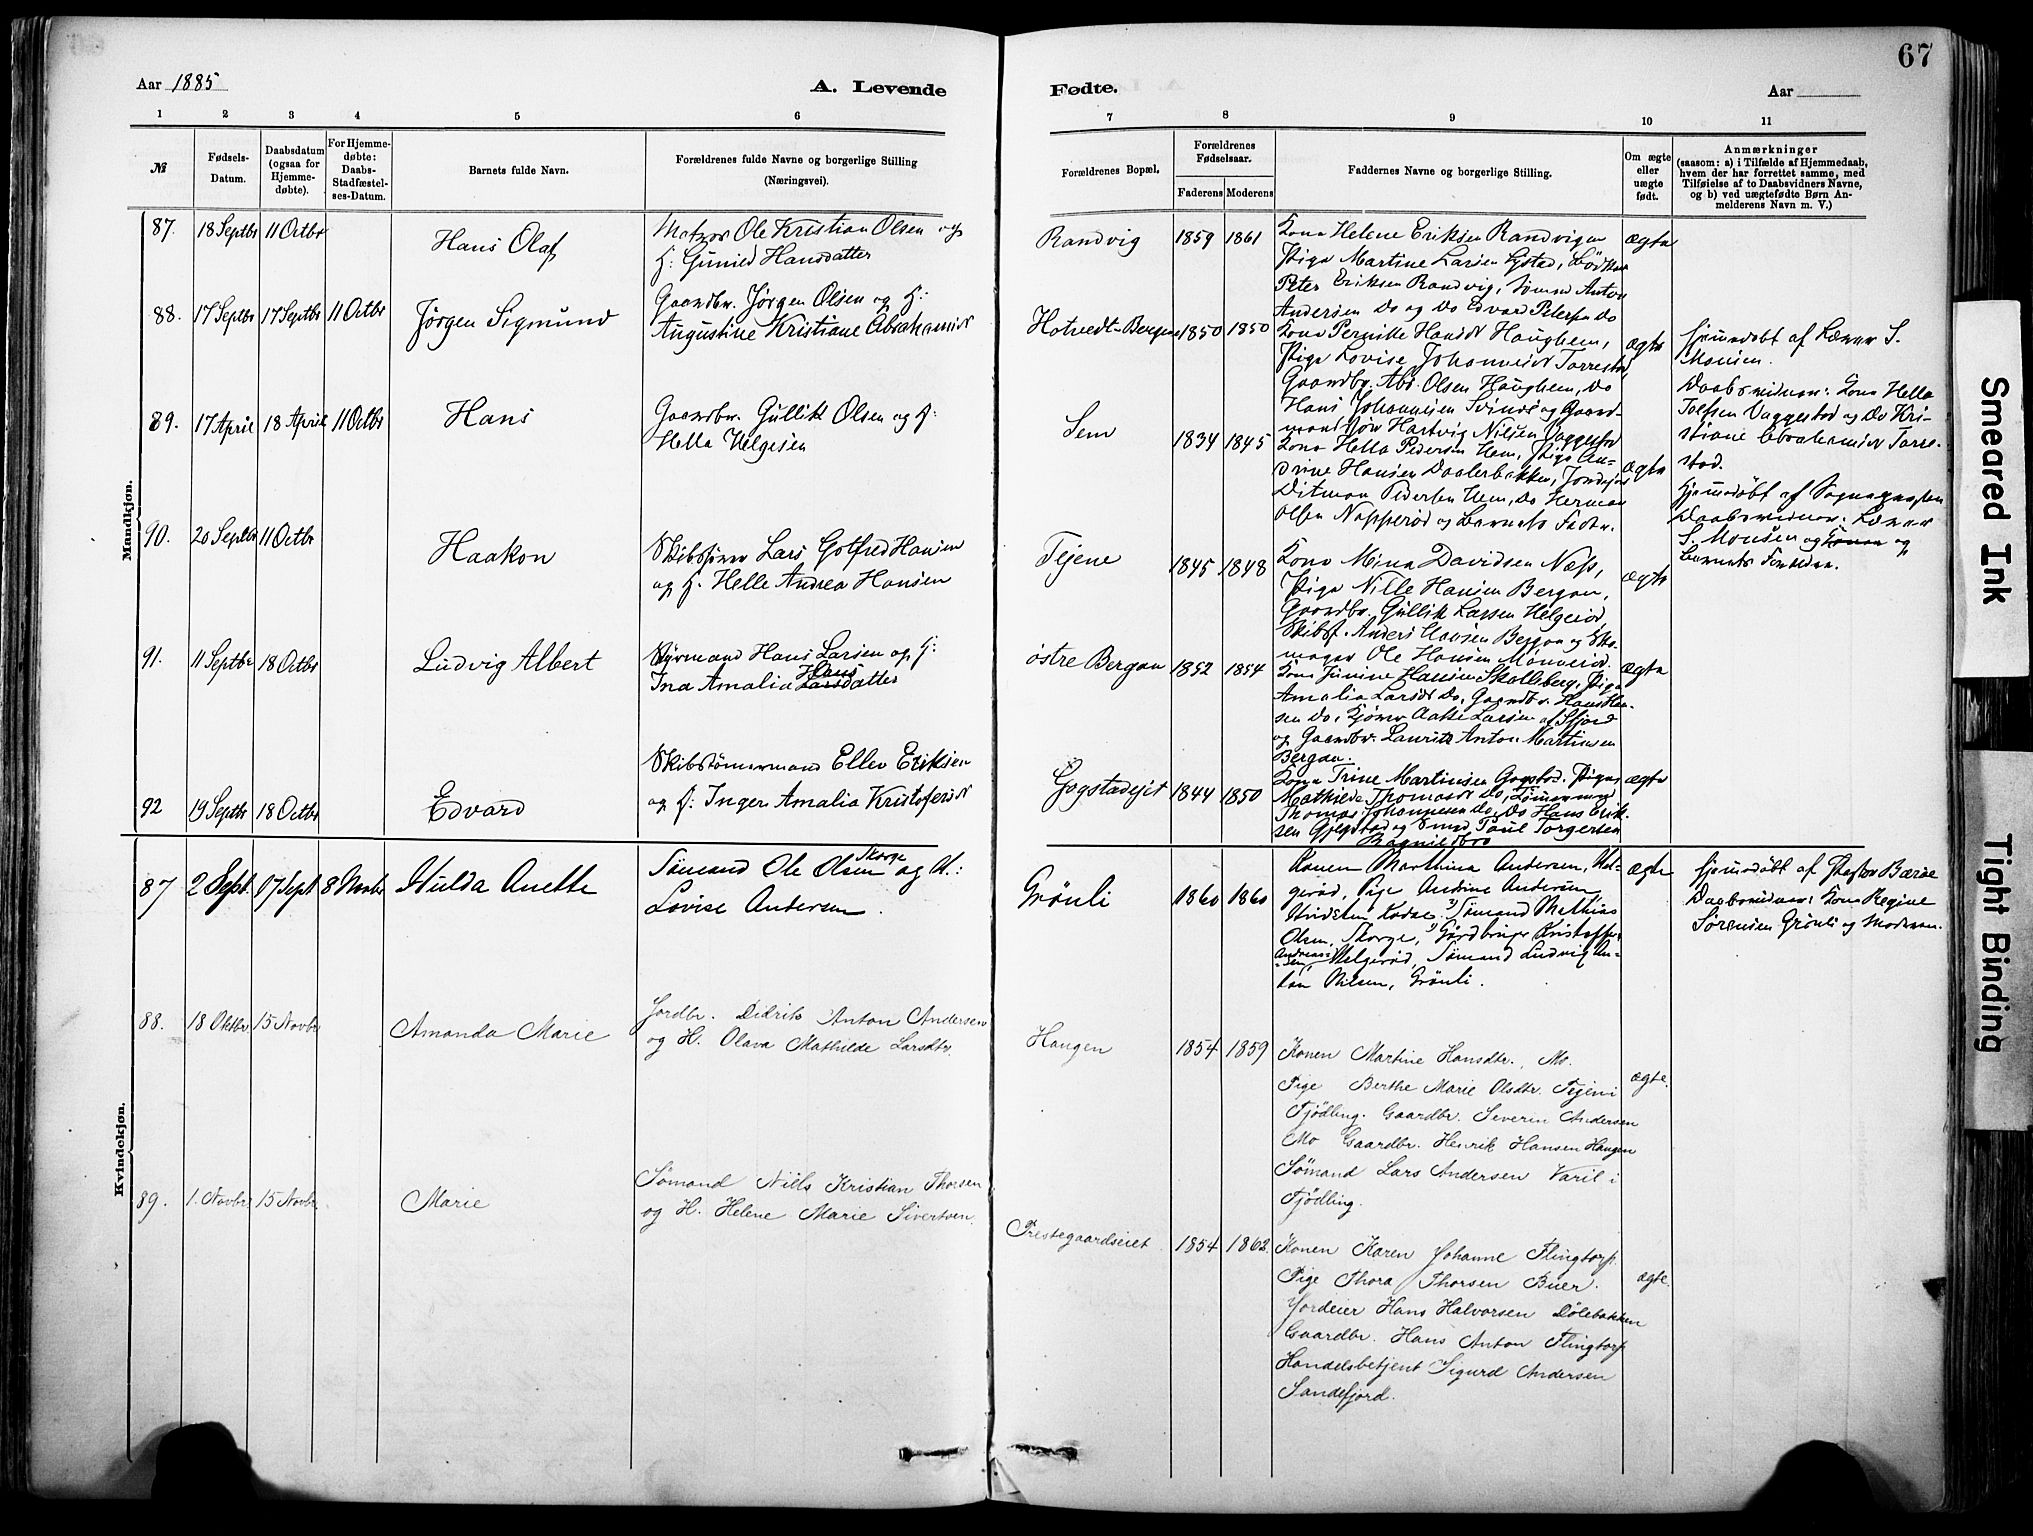 67
Aar 1885
A. Levende
Fødte.
Aar
1 2 3 4 5 6 7 8 9 10 11
№
Fødsels-
Datum.
Daabsdatum
(ogsaa for
Hjemme-
døbte).
For Hjemme-
døbte:
Daabs-
Stadfæstel-
ses-Datum.
Barnets fulde Navn.
Forældrenes fulde Navne og borgerlige Stilling
(Næringsvei).
Forældrenes Bopæl.
Forældrenes
Fødselsaar.
Faderens Moderens
Faddernes Navne og borgerlige Stilling.
Om ægte
eller
uægte
født.
Anmærkninger
(saasom: a) i Tilfælde af Hjemmedaab,
hvem der har forrettet samme, med
Tilføielse af to Daabsvidners Navne,
og b) ved uægtefødte Børn An-
melderens Navn m. V.)
Mandkjøn.
87. 18 Septbr 11 Octbr
Hans Olaf
Matros Ole Kristian Olsen og
H: Gunild Hansdatter
Randvig
1859 1861
Kona Helene Eriksen Randvigen
Pige Martine Larsen
Peter Eriksen Randvig, Sømand Anton
Andersen Do og Do Edvard Petersen Do
ægte
88. 17 Septbr 17 Septbr 11 Octbr
Jørgen Sigmund
Gaardbr. Jørgen Olsen og H:
Augustine Kristiane Abrahamsdr
Hotvedt-Bergan
1850 1850
Kona Pernille Hansdr Haughem,
Pige Lovise Johannesdr Torrestad
Gaardbr. Abr. Olsen Haughem, Do
Hans Johannesen og Gaard-
Hartvig Nilsen Vaggestad
ægte
Hjemmedøbt af Lærer S.
Monsen.
Daabsvidner: Kona Hella
Vaggestad og Do Kri-
stiane Abrahamsdr Torre-
stad.
89. 17 April 18 April 11 Octbr
Hans
Gaardbr. Gullik Olsen og H:
Hella Helgesen
Sem
1834 1845
Kona Hella Pedersen Hem, Pige An-
drine Hansen
Ditman Pedersen Hem, Do Herman
Olsen Napperød og Barnets Fader.
ægte
Hjemmedøbt af Sognepresten
Daabsvidner: Lærer
S. Monsen og Konen og
Barnets Forældre.
90. 20 Septbr 11 Octbr
Haakon
Skibsfører Lars Gotfred Hansen
og H. Helle Andrea Hansen
Tejene
1845 1848
Kona Mina Davidsen Næs,
Pige Nille Hansen Bergan,
Gaardbr. Gullik Larsen Helgerød,
Skibsf. Anders Hansen Bergan og Sko-
mager Ole Hansen
ægte
91. 11 Septbr 18 Octbr
Ludvig Albert
Styrmand Hans Larsen og H:
Ina Amalia Hans Larsdatter
østre Bergan
1852 1854
Kona Hansen Skolleberg, Pige
Amalia Larsdr Do, Gaardbr. Hans Han-
sen Do, Larsen af Sfjord
og Gaardbr. Lauritz Anton Martinsen
Bergan.
ægte
92 19 Septbr 18 Octbr
Edvard
Skibstømmermand Ellev Eriksen
og H: Inger Amalia Kristofersdr
Gogstadejet
1844 1850
Kona Trine Martinsen Gogstad. Pige
Mathilde Thomasdr Do, Tømmermand
Thomas Johannesen Do, Do Hans Erik-
sen og Smed Paul Torgersen
Ragnildbro
ægte
Kvindekjøn.
87 2 Sept. 17 Sept 8 Novbr
Hulda Anette
Sømand Ole Olsen Skorge og H.:
Lovise Andersen.
Grönli
1860 1860
Konen Marthina Andersen, Hel-
gerød, Pige Andine Andersen
Kodae. Sømand Mathias
Olsen, Skorge, Gårdbruger Kristoffer
Andreas-
sen Helgerød, Sømand Ludvig An-
ton Nilsen, Grönli.
ægte
Hjemmedøbt af Pastor Barse
Daabsvidner: Kona Regine
Sørensen Grönli og Moderen.
88. 18 Oktbr. 15 Novbr.
Amanda Marie
Jordbr. Didrik Anton Andersen
og H. Olava Mathilde Larsdtr.
Haugen
1854 1859
Konen Martine Hansdtr., Mo.
Pige Berthe Marie Olsdtr. Tejeni
Tjödling. Gaardbr. Severin Andersen
Mo Gaardbr. Henrik Hansen Haugen
Sömand Lars Andersen Varil i
Tjödling.
ægte.
89. 1. Novbr. 15 Novbr.
Marie
Sömand Niels Kristian Thorsen
og H. Helene Marie Sivertsen.
Prestegaardseiet.
1854 1862.
Konen Karen Johanne Flingtorp.
Pige Thora Thorsen Buer.
Jordeier Hans Halvorsen Dölebakken
Gaardbr. Hans Anton Flingtorp
Handelsbetjent Sigurd Andersen
Sandefjord.
ægte.
Smeared Ink
Tight Binding